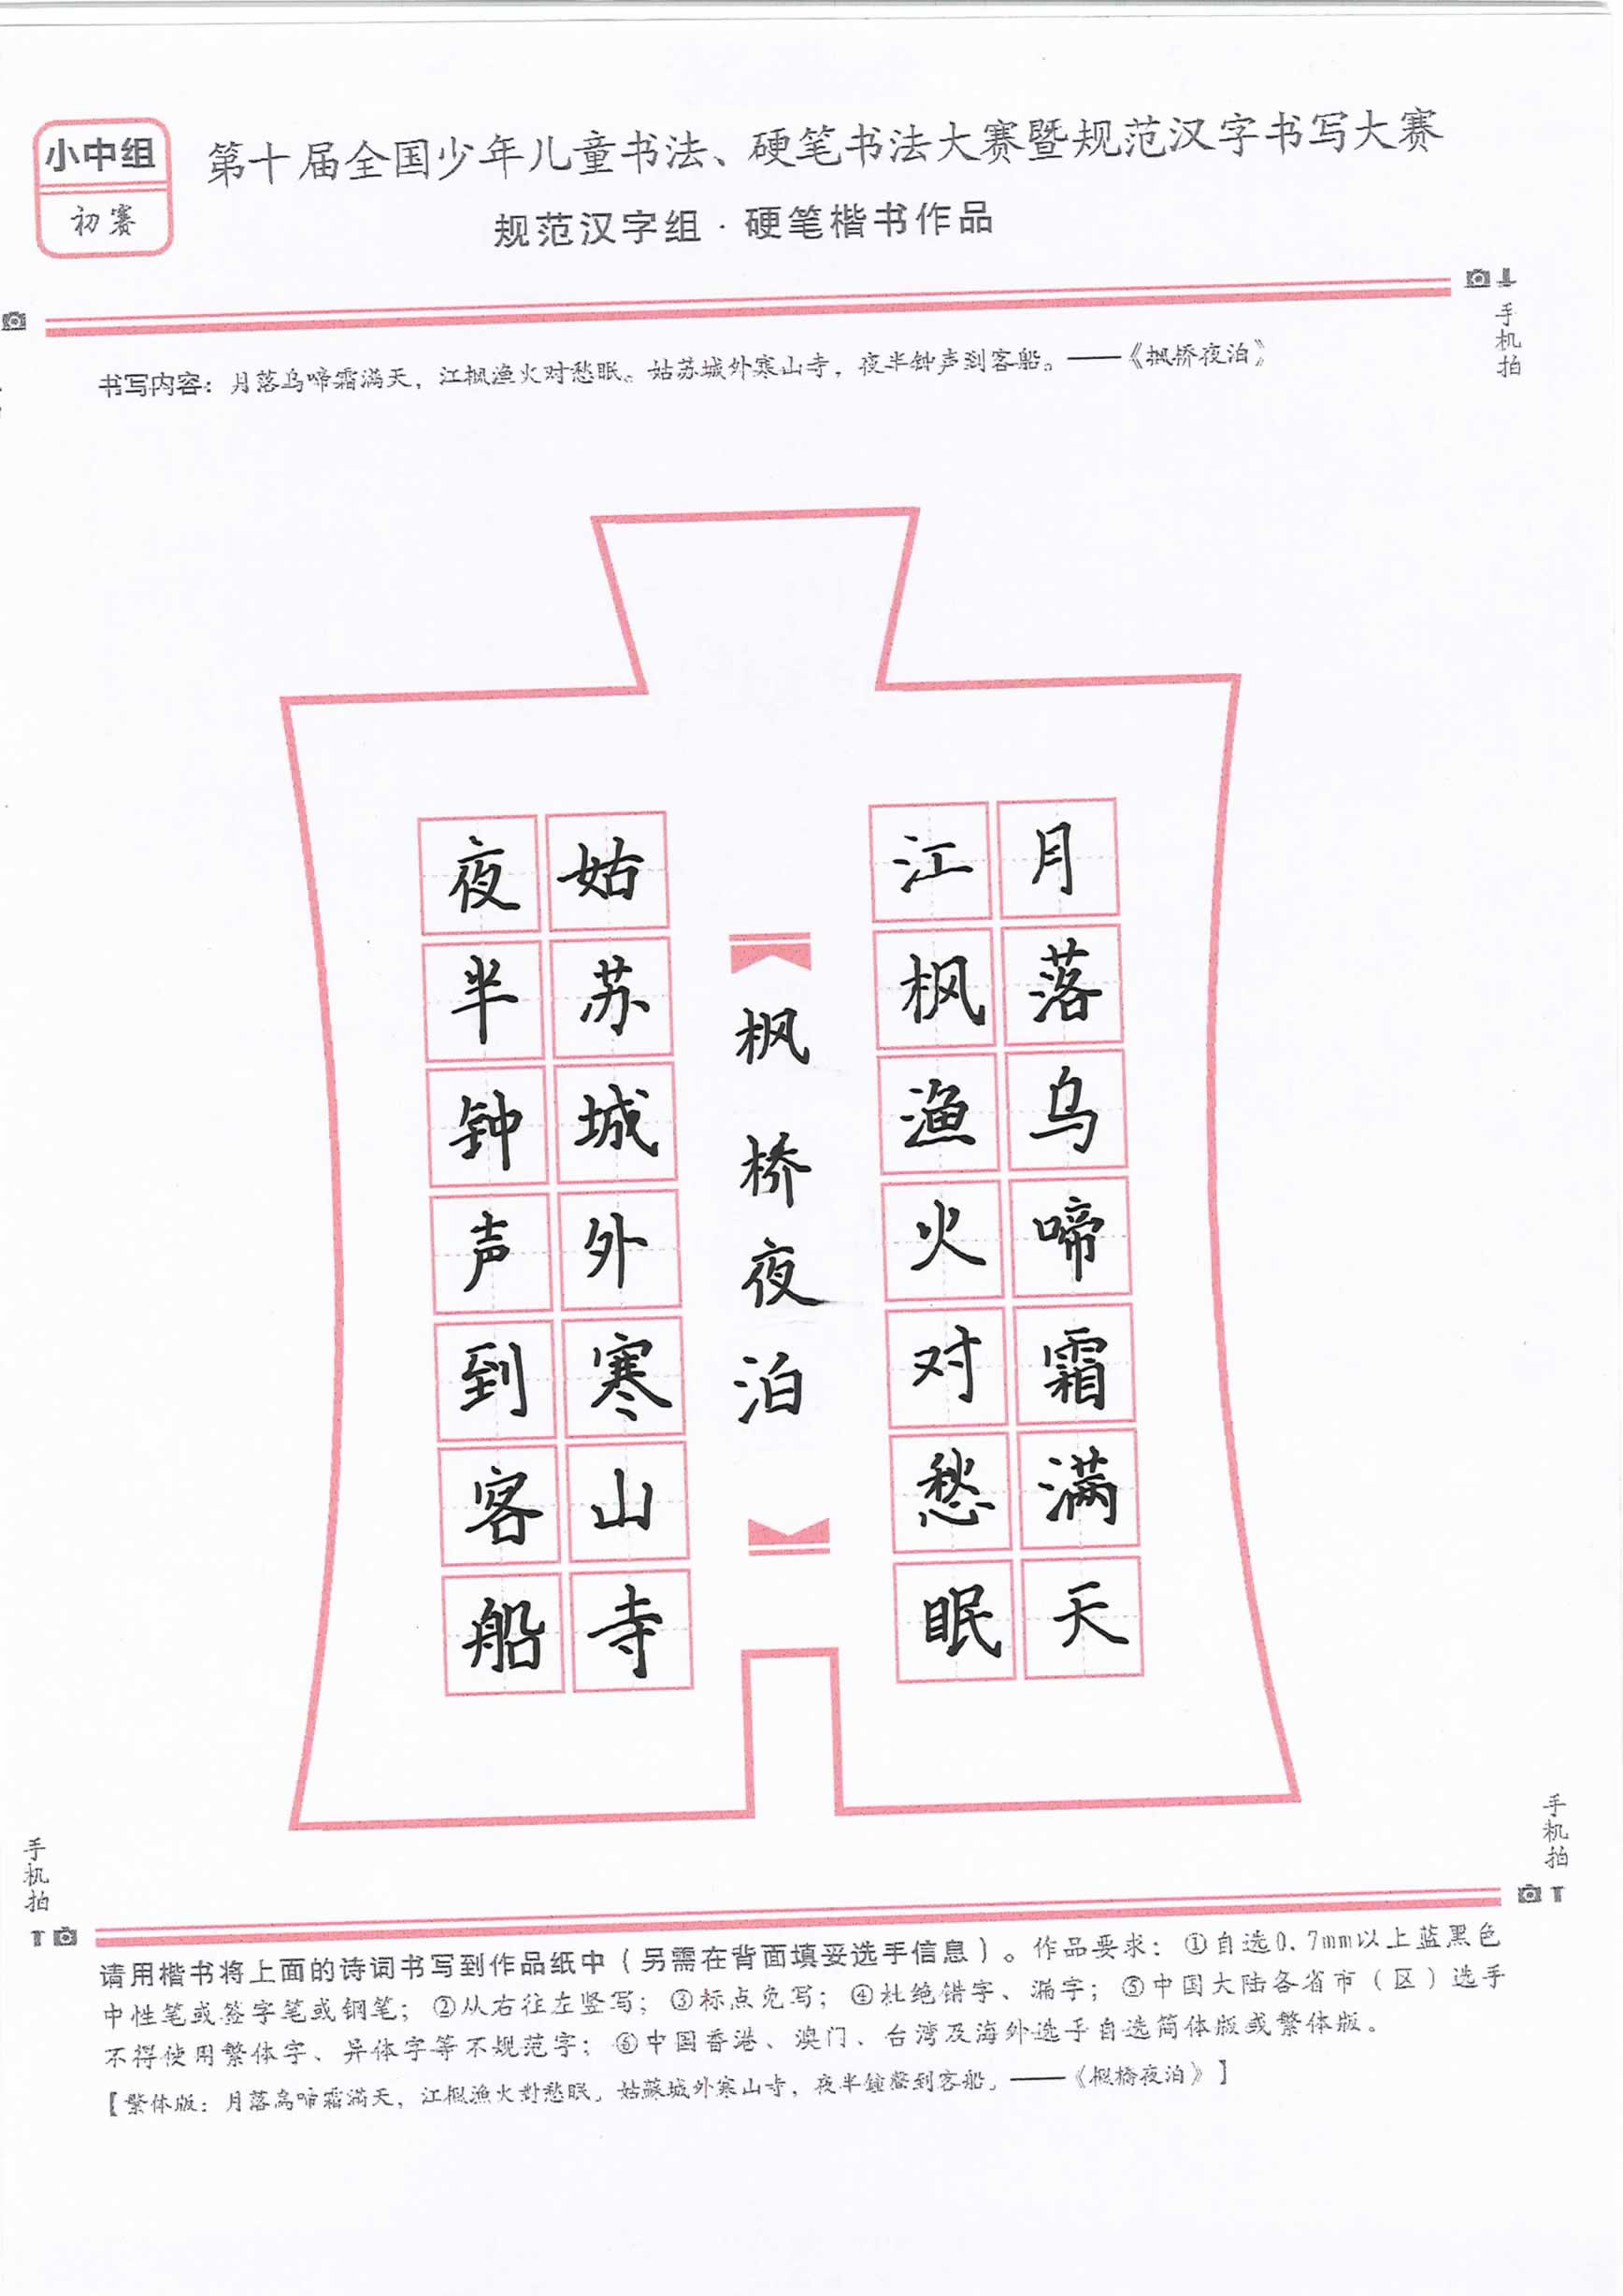 小中组
初赛
第十届全国少年儿童书法、硬笔书法大赛暨规范汉字书写大赛
规范汉字组·硬笔楷书作品
手机拍
书写内容：月落乌啼霜满天，江枫渔火对愁眠。姑苏城外寒山寺，夜半钟声到客船。——《枫桥夜泊》
月落乌啼霜满天
江枫渔火对愁眠
枫桥夜泊
姑苏城外寒山寺
夜半钟声到客船
手机拍
手机拍
请用楷书将上面的诗词书写到作品纸中（另需在背面填妥选手信息）。作品要求：①自选0.7mm以上蓝黑色
中性笔或签字笔或钢笔；②从右往左竖写；③标点免写；④杜绝错字、漏字；⑤中国大陆各省市（区）选手
不得使用繁体字、异体字等不规范字；⑥中国香港、澳门、台湾及海外选手自选简体版或繁体版。
【繁体版：月落烏啼霜滿天，江楓漁火對愁眠。姑蘇城外寒山寺，夜半鐘聲到客船。——《楓橋夜泊》】